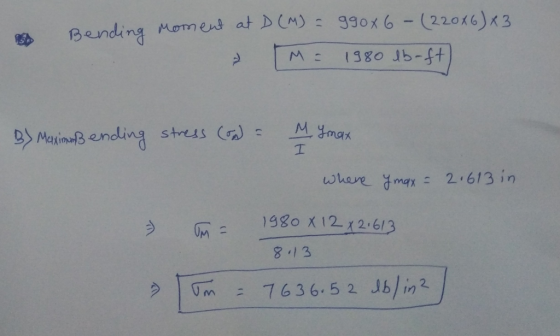 Bending Moment at D (M) = 990x6 - (220x6) x 3
⇒ M = 1980 lb-ft
B) Maximum Bending stress (σm) = M/I ymax
where ymax = 2.613 in
⇒ σM = 1980 x 12 x 2.613 / 8.13
⇒ σm = 7636.52 lb/in²